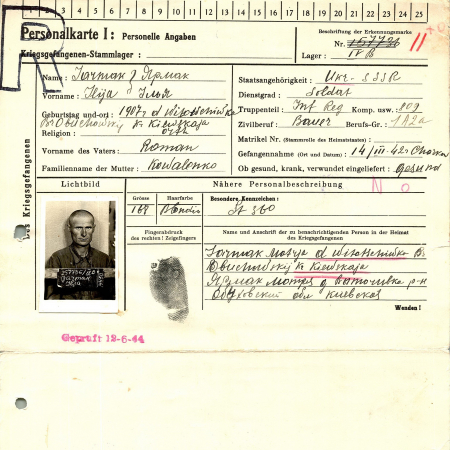 1 2 3 4 5 6 7 8 9 10 11 12 13 14 15 16 17 18 19 20 21 22 23 24 25
R
Personalkarte I: Personelle Angaben
Kriegsgefangenen-Stammlager:
Beschriftung der Erkennungsmarke
Nr. 157726
Lager: IV B
11
Des Kriegsgefangenen
Name: Ярмак
Vorname: Ilja Илья
Geburtstag und -ort: 1907 d
Obuchowskij k Kiewskaja
Religion: orth
Vorname des Vaters: Roman
Familienname der Mutter: Kowalenko
Staatsangehörigkeit: Ukr-SSSR
Dienstgrad: Soldat
Truppenteil: Inf Reg Komp. usw.: 809
Zivilberuf: Bauer Berufs-Gr.: 1A2a
Matrikel Nr. (Stammrolle des Heimatstaates):
Gefangennahme (Ort und Datum): 14/III-42
Ob gesund, krank, verwundet eingeliefert: gesund
N o
Lichtbild
Nähere Personalbeschreibung
Grösse
169
Haarfarbe
Blondin
Besondere Kennzeichen:
St 360
Fingerabdruck
des rechten! Zeigefingers
Name und Anschrift der zu benachrichtigenden Person in der Heimat
des Kriegsgefangenen
Obuchowskij k Kiewskaja
Ярмак Мотря д р-н
обл киевская
Wenden!
Geprüft 12-6-44